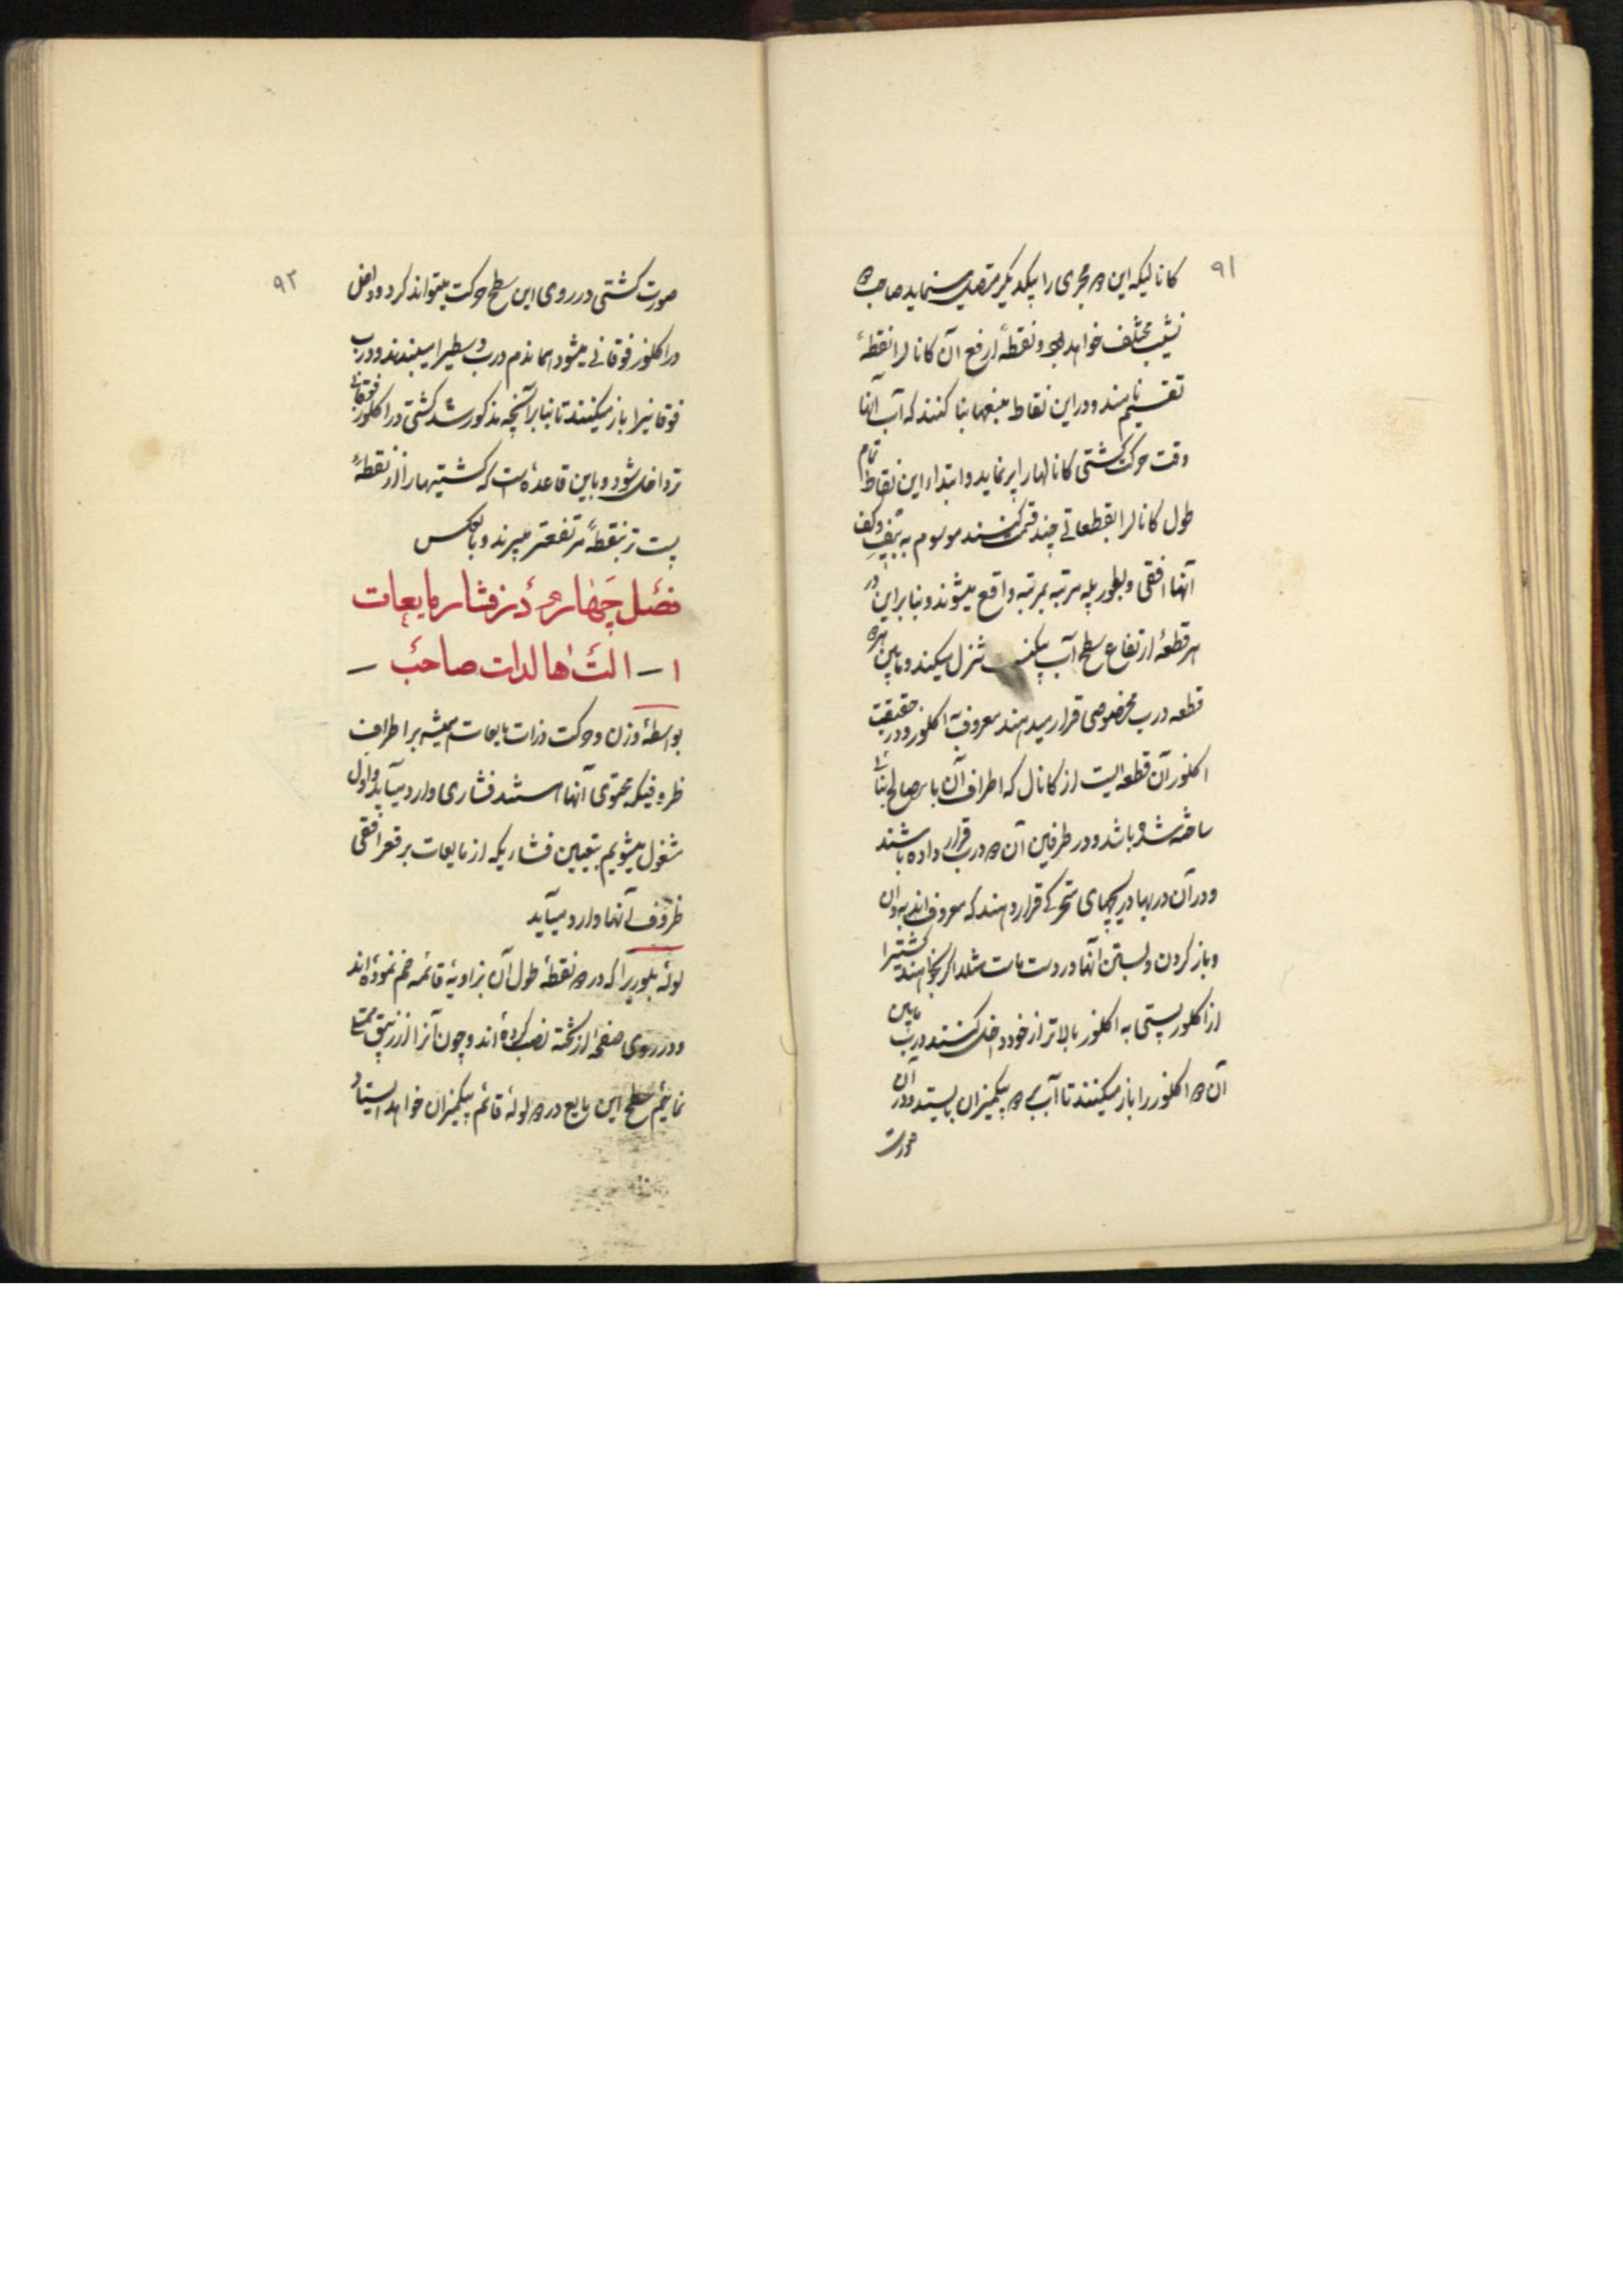 ۹۱
کانالیکه این دو مجری را بیکدیگر متصل مینماید صاحب دو
شیب مختلف خواهد بود و نقطهٔ ارفع آن کانال را نقطهٔ
تقسیم نامند و در این نقاط منبعها بنا کنند که آب آنها
وقت حرکت کشتی کانالها را پر نماید و ابتداء این نقاط تمام
طول کانال را بقطعاتی چند قسمت کنند موسوم به بیف و کف
آنها افقی و بطور پله مرتبه بمرتبه واقع میشوند و بنابراین در
هر قطعه ارتفاع سطح آب تنزل میکند و مابین هر دو
قطعه درب مخصوصی قرار میدهند معروف به اکلوز و در حقیقت
اکلوز آن قطعه ایست از کانال که اطراف آن با مصالح بنائی
ساخته شده باشد و در طرفین آن دو درب قرار داده باشند
و در آن دربها دریچهای متحرکی قرار دهند که معروف اند به وان
و باز کردن و بستن آنها در دست ماست مثلا اگر بخواهند کشتیرا
از اکلوز پستی به اکلوز بالاتر از خود داخل کنند درب مابین
آن دو اکلوز را باز میکنند تا آب هر دو بیکمیزان بایستد و در آن
صورت
۹۲
صورت کشتی در روی این سطح حرکت میتواند کرد و داخل
در اکلوز فوقانی میشود اما نذم درب وسطیرا میبندند و درب
فوقانیرا باز میکنند تا بنابر آنچه مذکور شد کشتی در اکلوز فوقانی
تر داخل شود و باین قاعده است که کشتیها را از نقطهٔ
پست تر بنقطهٔ مرتفعتر میبرند و بالعکس
فصل چهارم در فشار مایعات
۱ – الت هالدات صاحب –
بواسطهٔ وزن و حرکت ذرات مایعات همیشه بر اطراف
ظروفیکه محتوی آنها هستند فشاری وارد میآید و اول
مشغول میشویم بتعیین فشاریکه از مایعات بر قعر افقی
ظروف آنها وارد میآید
لولهٔ بلوریرا که در دو نقطهٔ طول آن بزاویهٔ قائمه خم نموده اند
و در روی صفحهٔ از تخته نصب کرده اند و چون آنرا از زیبق ممتلی
نمائیم سطح این مایع در دو لولهٔ قائم بیکمیزان خواهد ایستاد